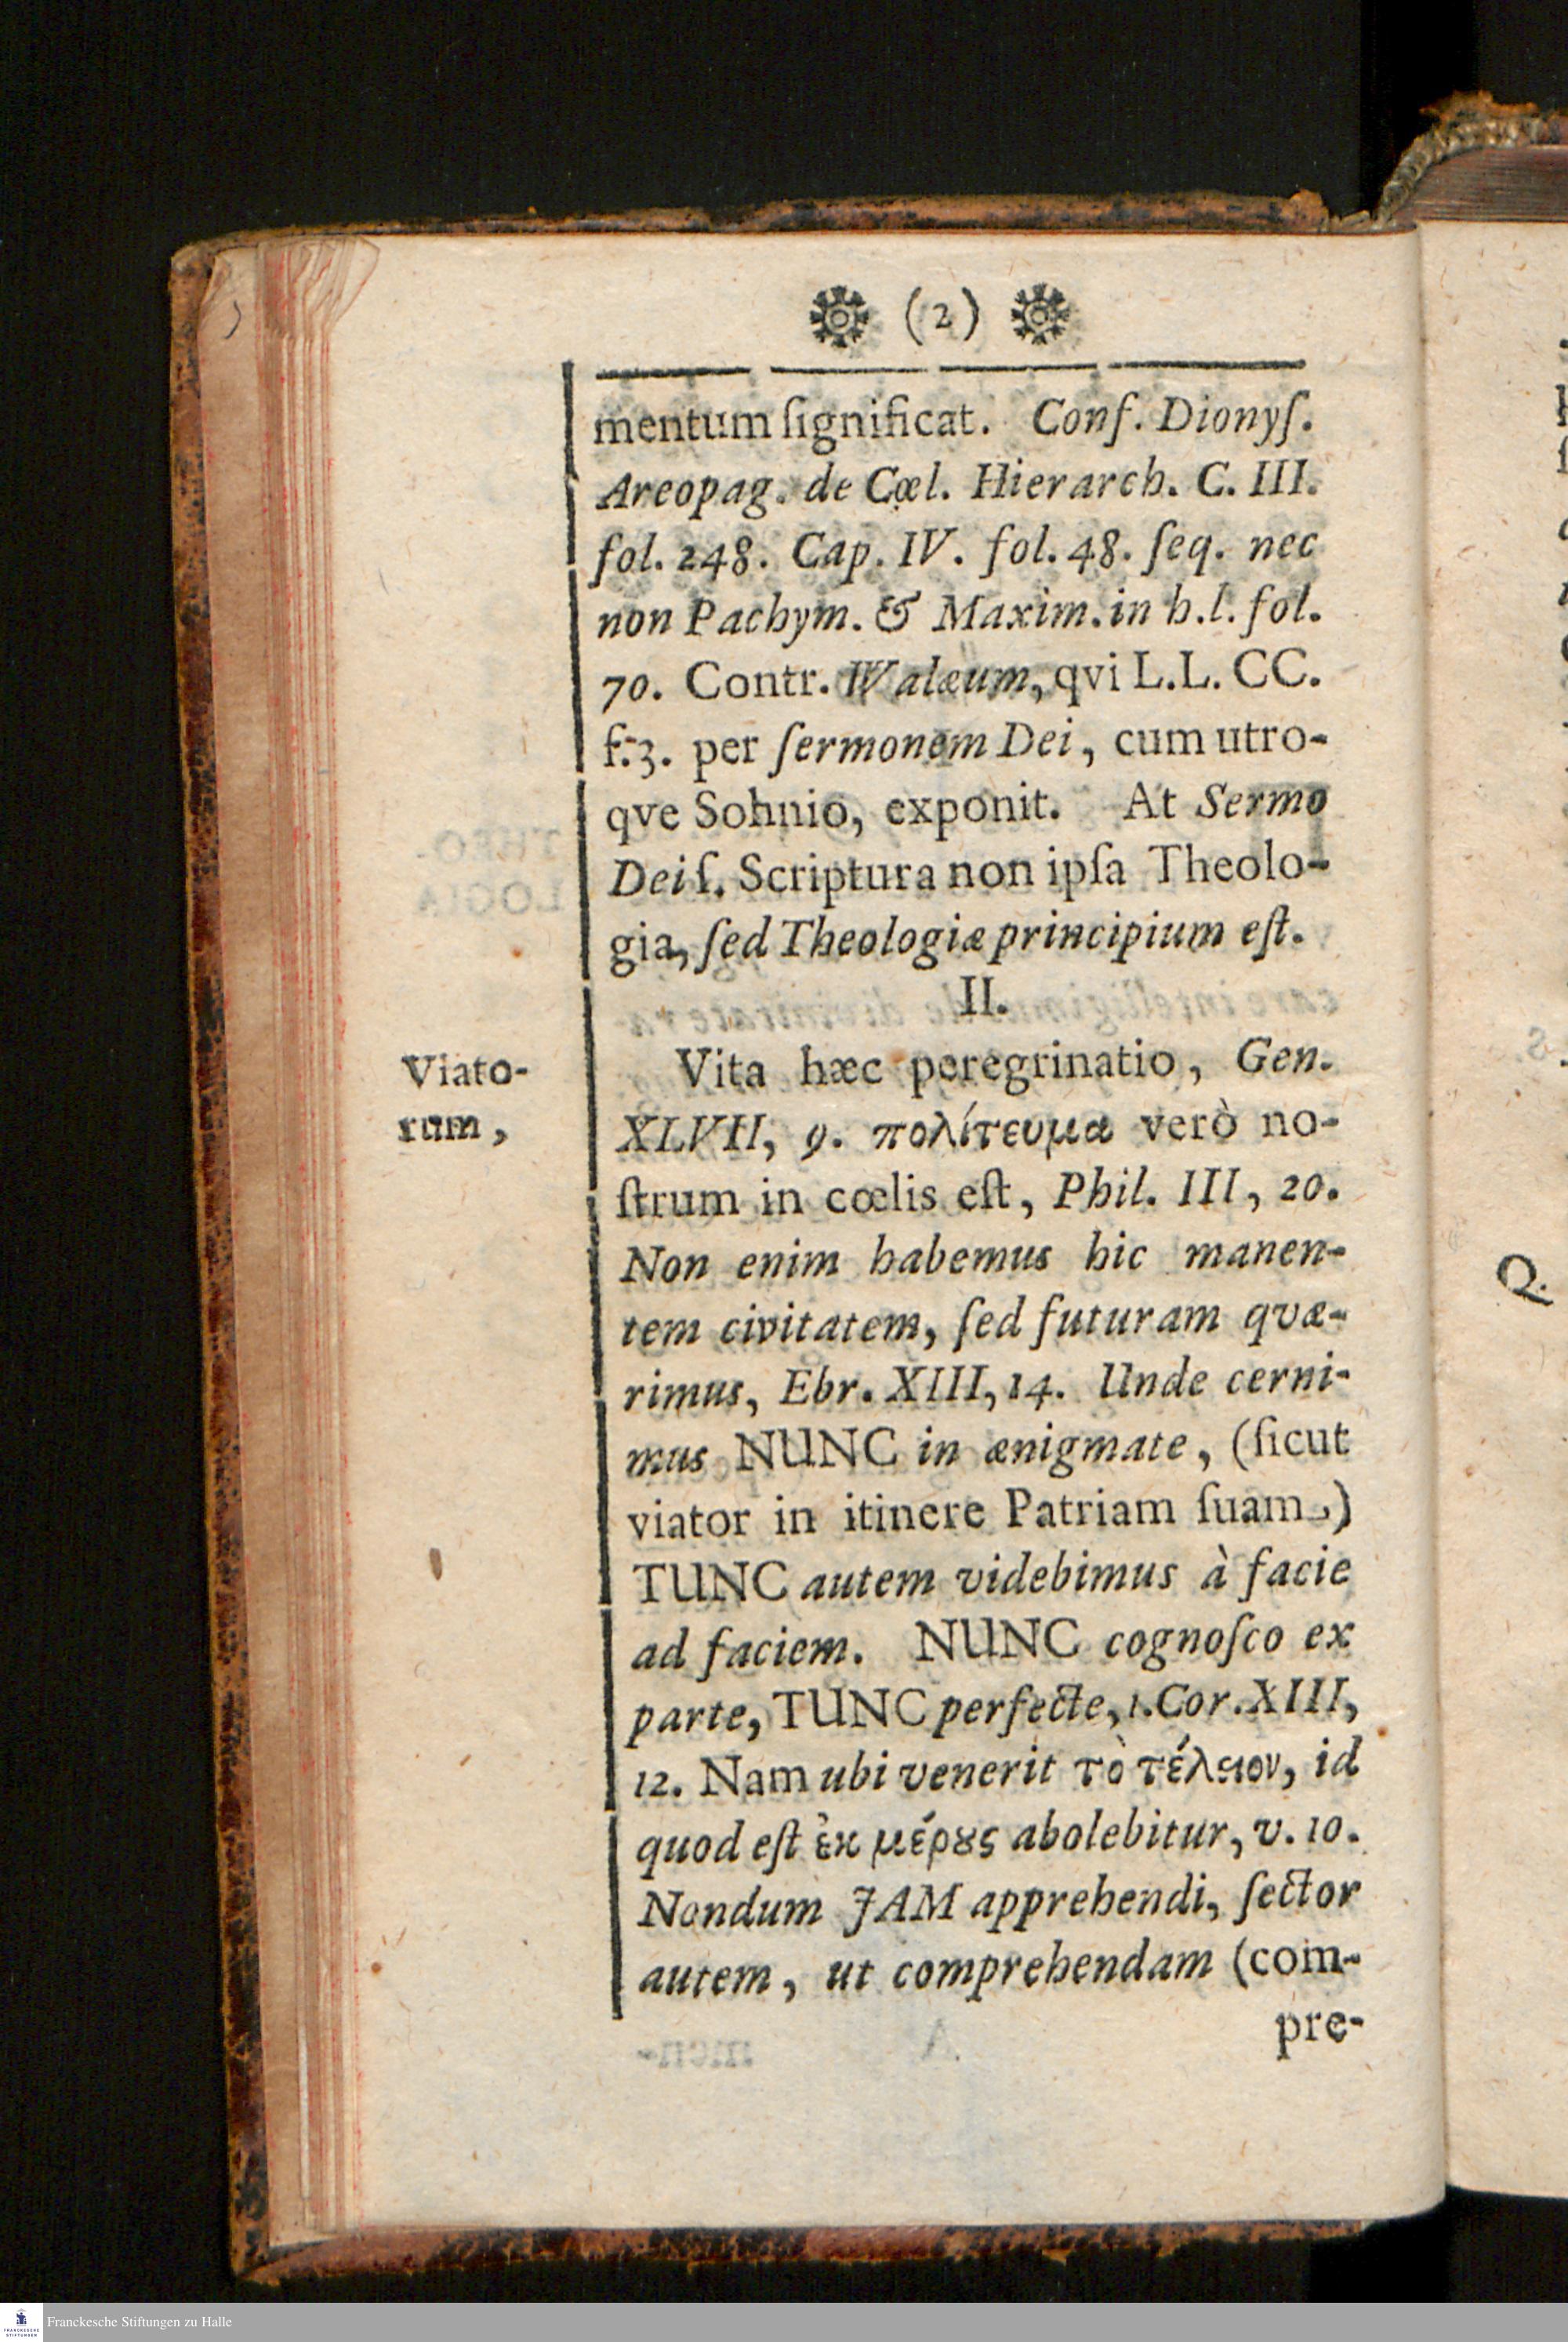 (2)
mentum ſignificat. Conf. Dionyſ.
Areopag. de Cœl. Hierarch. C. III.
fol. 248. Cap. IV. fol. 48. ſeq. nec
non Pachym. & Maxim. in h. l. fol.
70. Contr. Walæum, qvi L.L. CC.
f. 3. per ſermonem Dei, cum utro-
qve Sohnio, exponit. At Sermo
Dei ſ. Scriptura non ipſa Theolo-
gia, ſed Theologiæ principium eſt.
II.
Viato-
rum,
Vita hæc peregrinatio, Gen.
XLVII, 9. πολίτευμα verò no-
ſtrum in cœlis eſt, Phil. III, 20.
Non enim habemus hic manen-
tem civitatem, ſed futuram qvæ-
rimus, Ebr. XIII, 14. Unde cerni-
mus NUNC in ænigmate, (ſicut
viator in itinere Patriam ſuam,)
TUNC autem videbimus à facie
ad faciem. NUNC cognoſco ex
parte, TUNC perfecte, 1. Cor. XIII,
12. Nam ubi venerit τὸ τέλειον, id
quod eſt ἐκ μέρȣς abolebitur, v. 10.
Nondum JAM apprehendi, ſector
autem, ut comprehendam (com-
pre-
Q.
Franckesche Stiftungen zu Halle